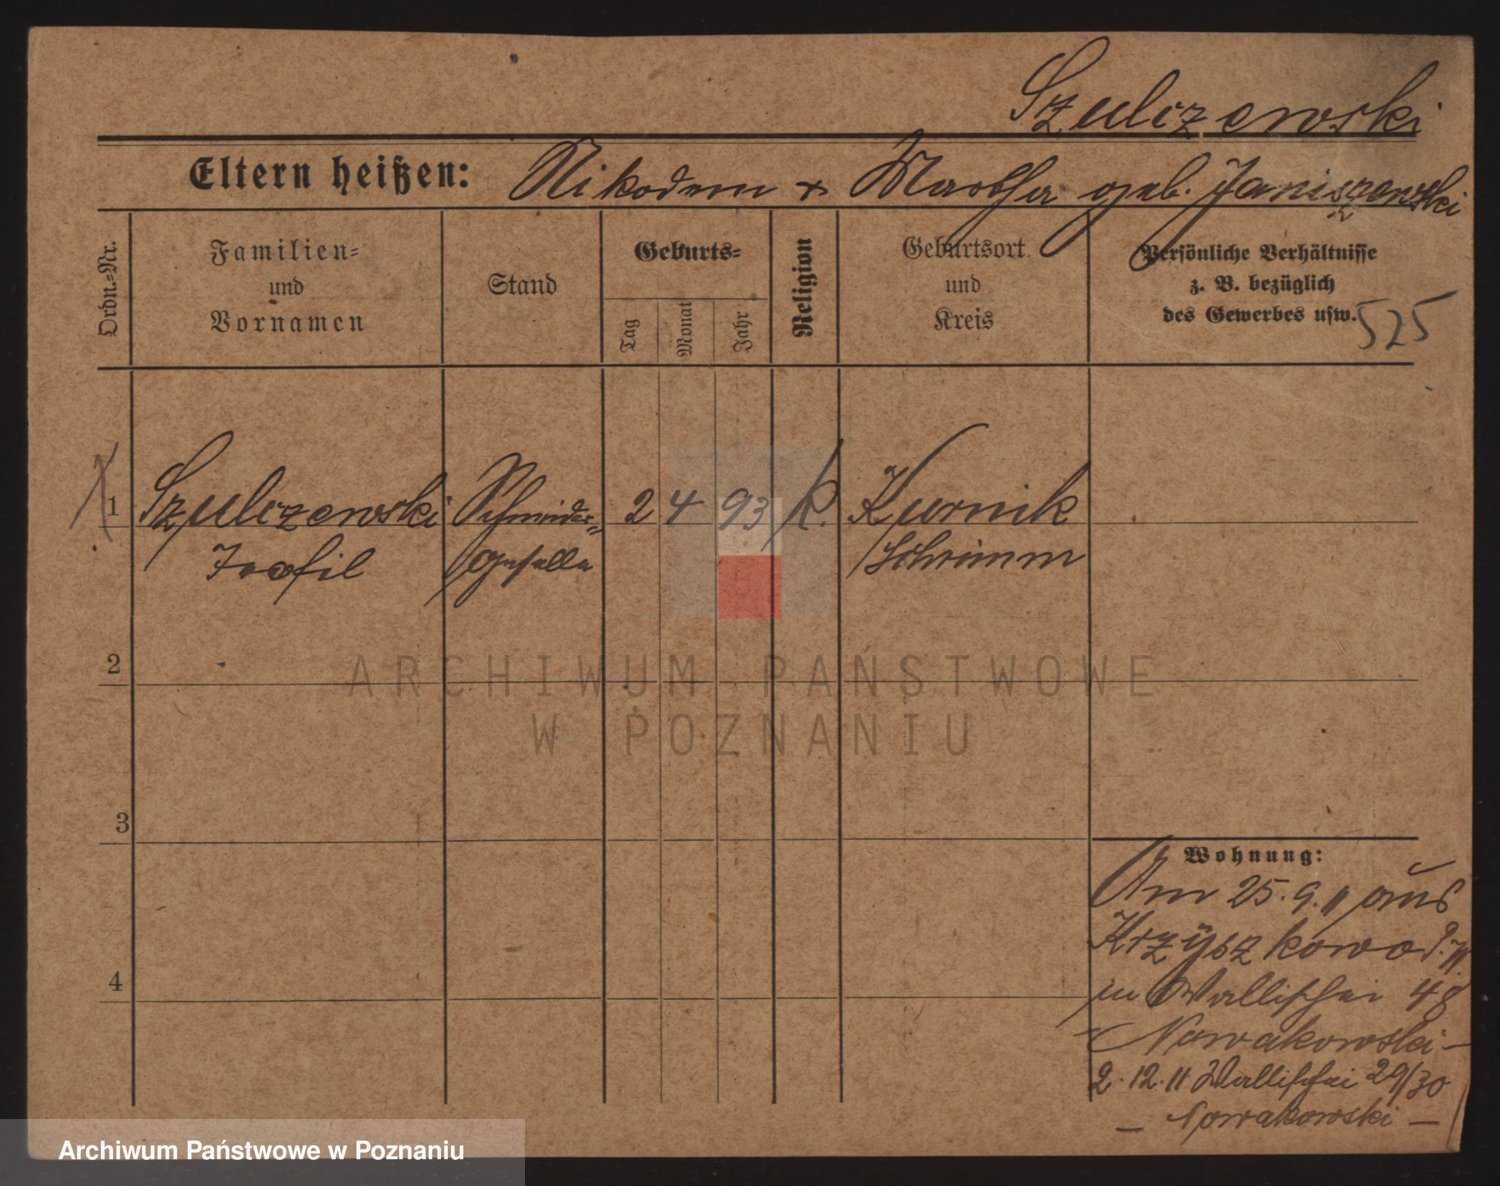 Szulczewski
Eltern heißen: Nikodem & Martha geb. Janiszewski
Ordn.-Nr.
Familien-
und
Vornamen
Stand
Geburts-
Tag
Monat
Jahr
Religion
Geburtsort
und
Kreis
Persönliche Verhältnisse
z. B. bezüglich
des Gewerbes usw. 525
1 Szulczewski Schmiede- 2 4 93 k. Kurnik
Teofil geselle Schrimm
2
3
4
Wohnung:
Am 25.9.11 aus
Krzyszkowo
in Wallischei 48
Nowakowski -
2.12.11 Wallischei 29/30
- Nowakowski -
ARCHIWUM PAŃSTWOWE
W POZNANIU
Archiwum Państwowe w Poznaniu